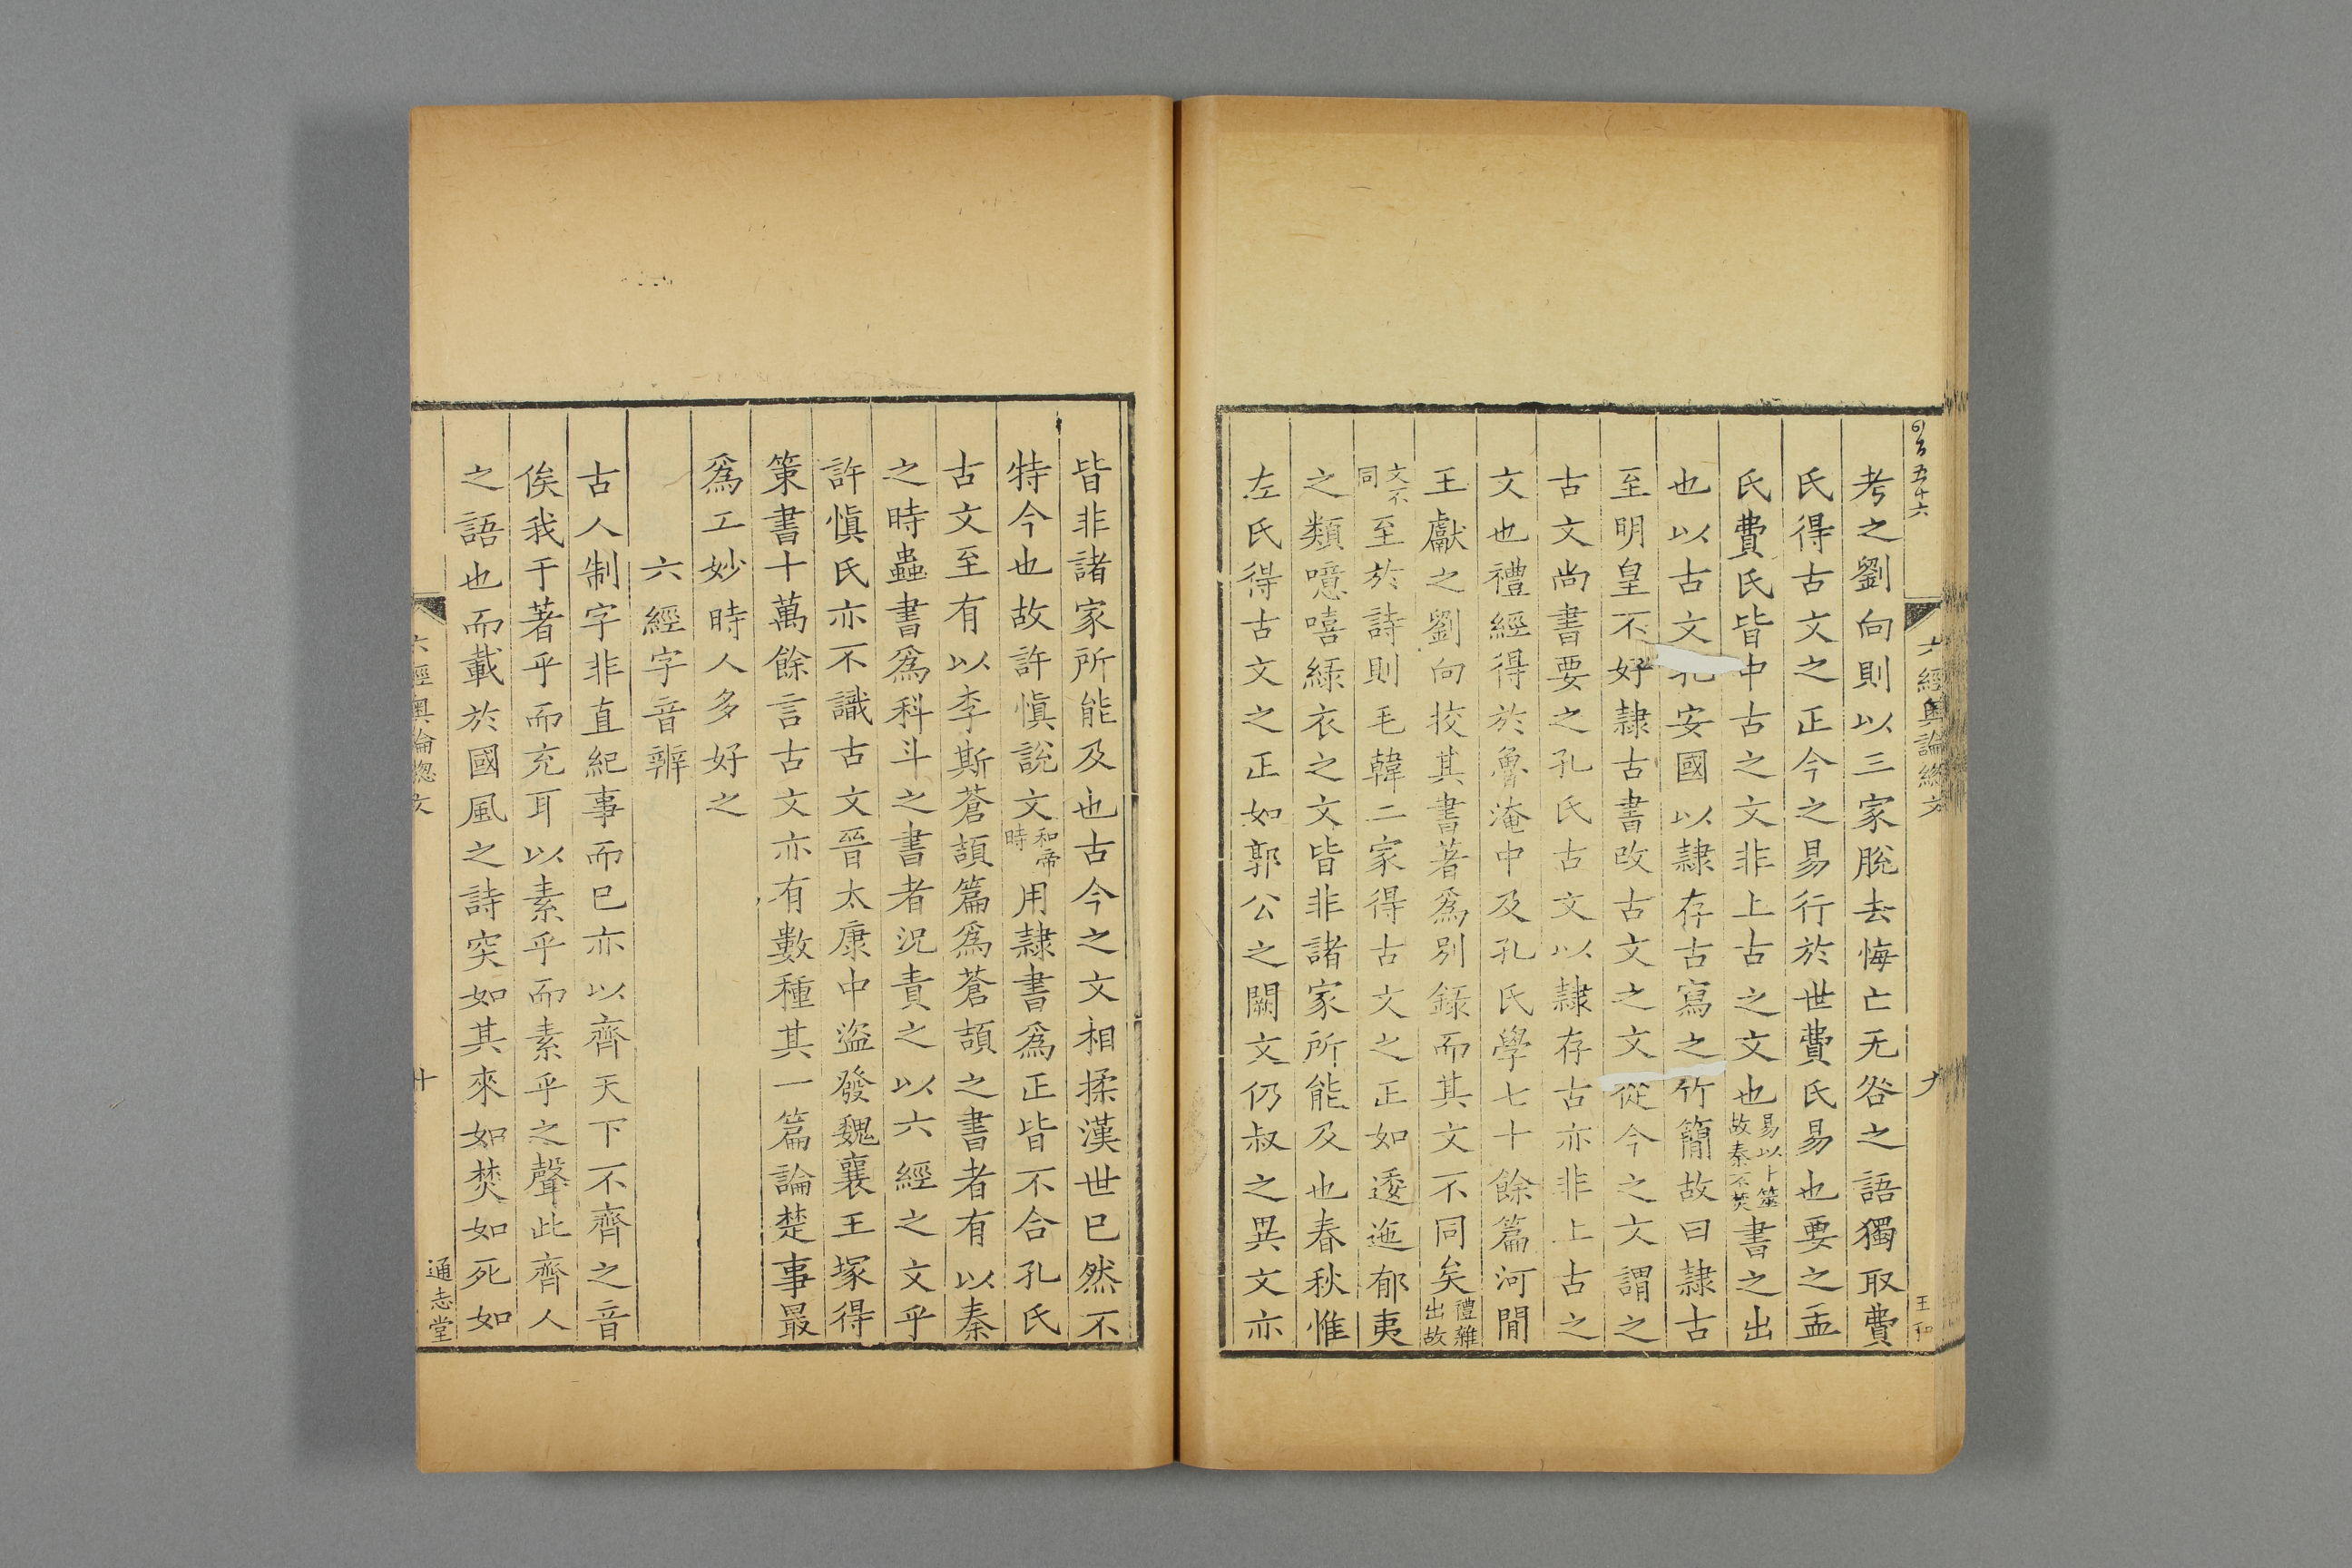 考之劉向則以三家脫去悔亡无咎之語獨取費
氏得古文之正今之易行於世費氏易也要之孟
氏費氏皆中古之文非上古之文也易以卜筮故秦不焚書之出
也以古文孔安國以隷存古寫之竹簡故曰隷古
至明皇不好隷古書改古文之文從今之文謂之
古文尚書要之孔氏古文以隷存古亦非上古之
文也禮經得於魯淹中及孔氏學七十餘篇河間
王獻之劉向挍其書著爲别録而其文不同矣禮雜出故
文不同至於詩則毛韓二家得古文之正如逶迤郁夷
之類噫嘻綠衣之文皆非諸家所能及也春秋惟
左氏得古文之正如郭公之闕文仍叔之異文亦
皆非諸家所能及也古今之文相揉漢世已然不
特今也故許愼說文和帝時用隷書爲正皆不合孔氏
古文至有以李斯蒼頡篇爲蒼頡之書者有以秦
之時蟲書爲科斗之書者况責之以六經之文乎
許愼氏亦不識古文晉太康中盜發魏襄王塚得
策書十萬餘言古文亦有數種其一篇論楚事最
爲工妙時人多好之
六經字音辨
古人制字非直紀事而已亦以齊天下不齊之音
俟我于著乎而充耳以素乎而素乎之聲此齊人
之語也而載於國風之詩突如其來如焚如死如
六經奧論緫文
十
通志堂